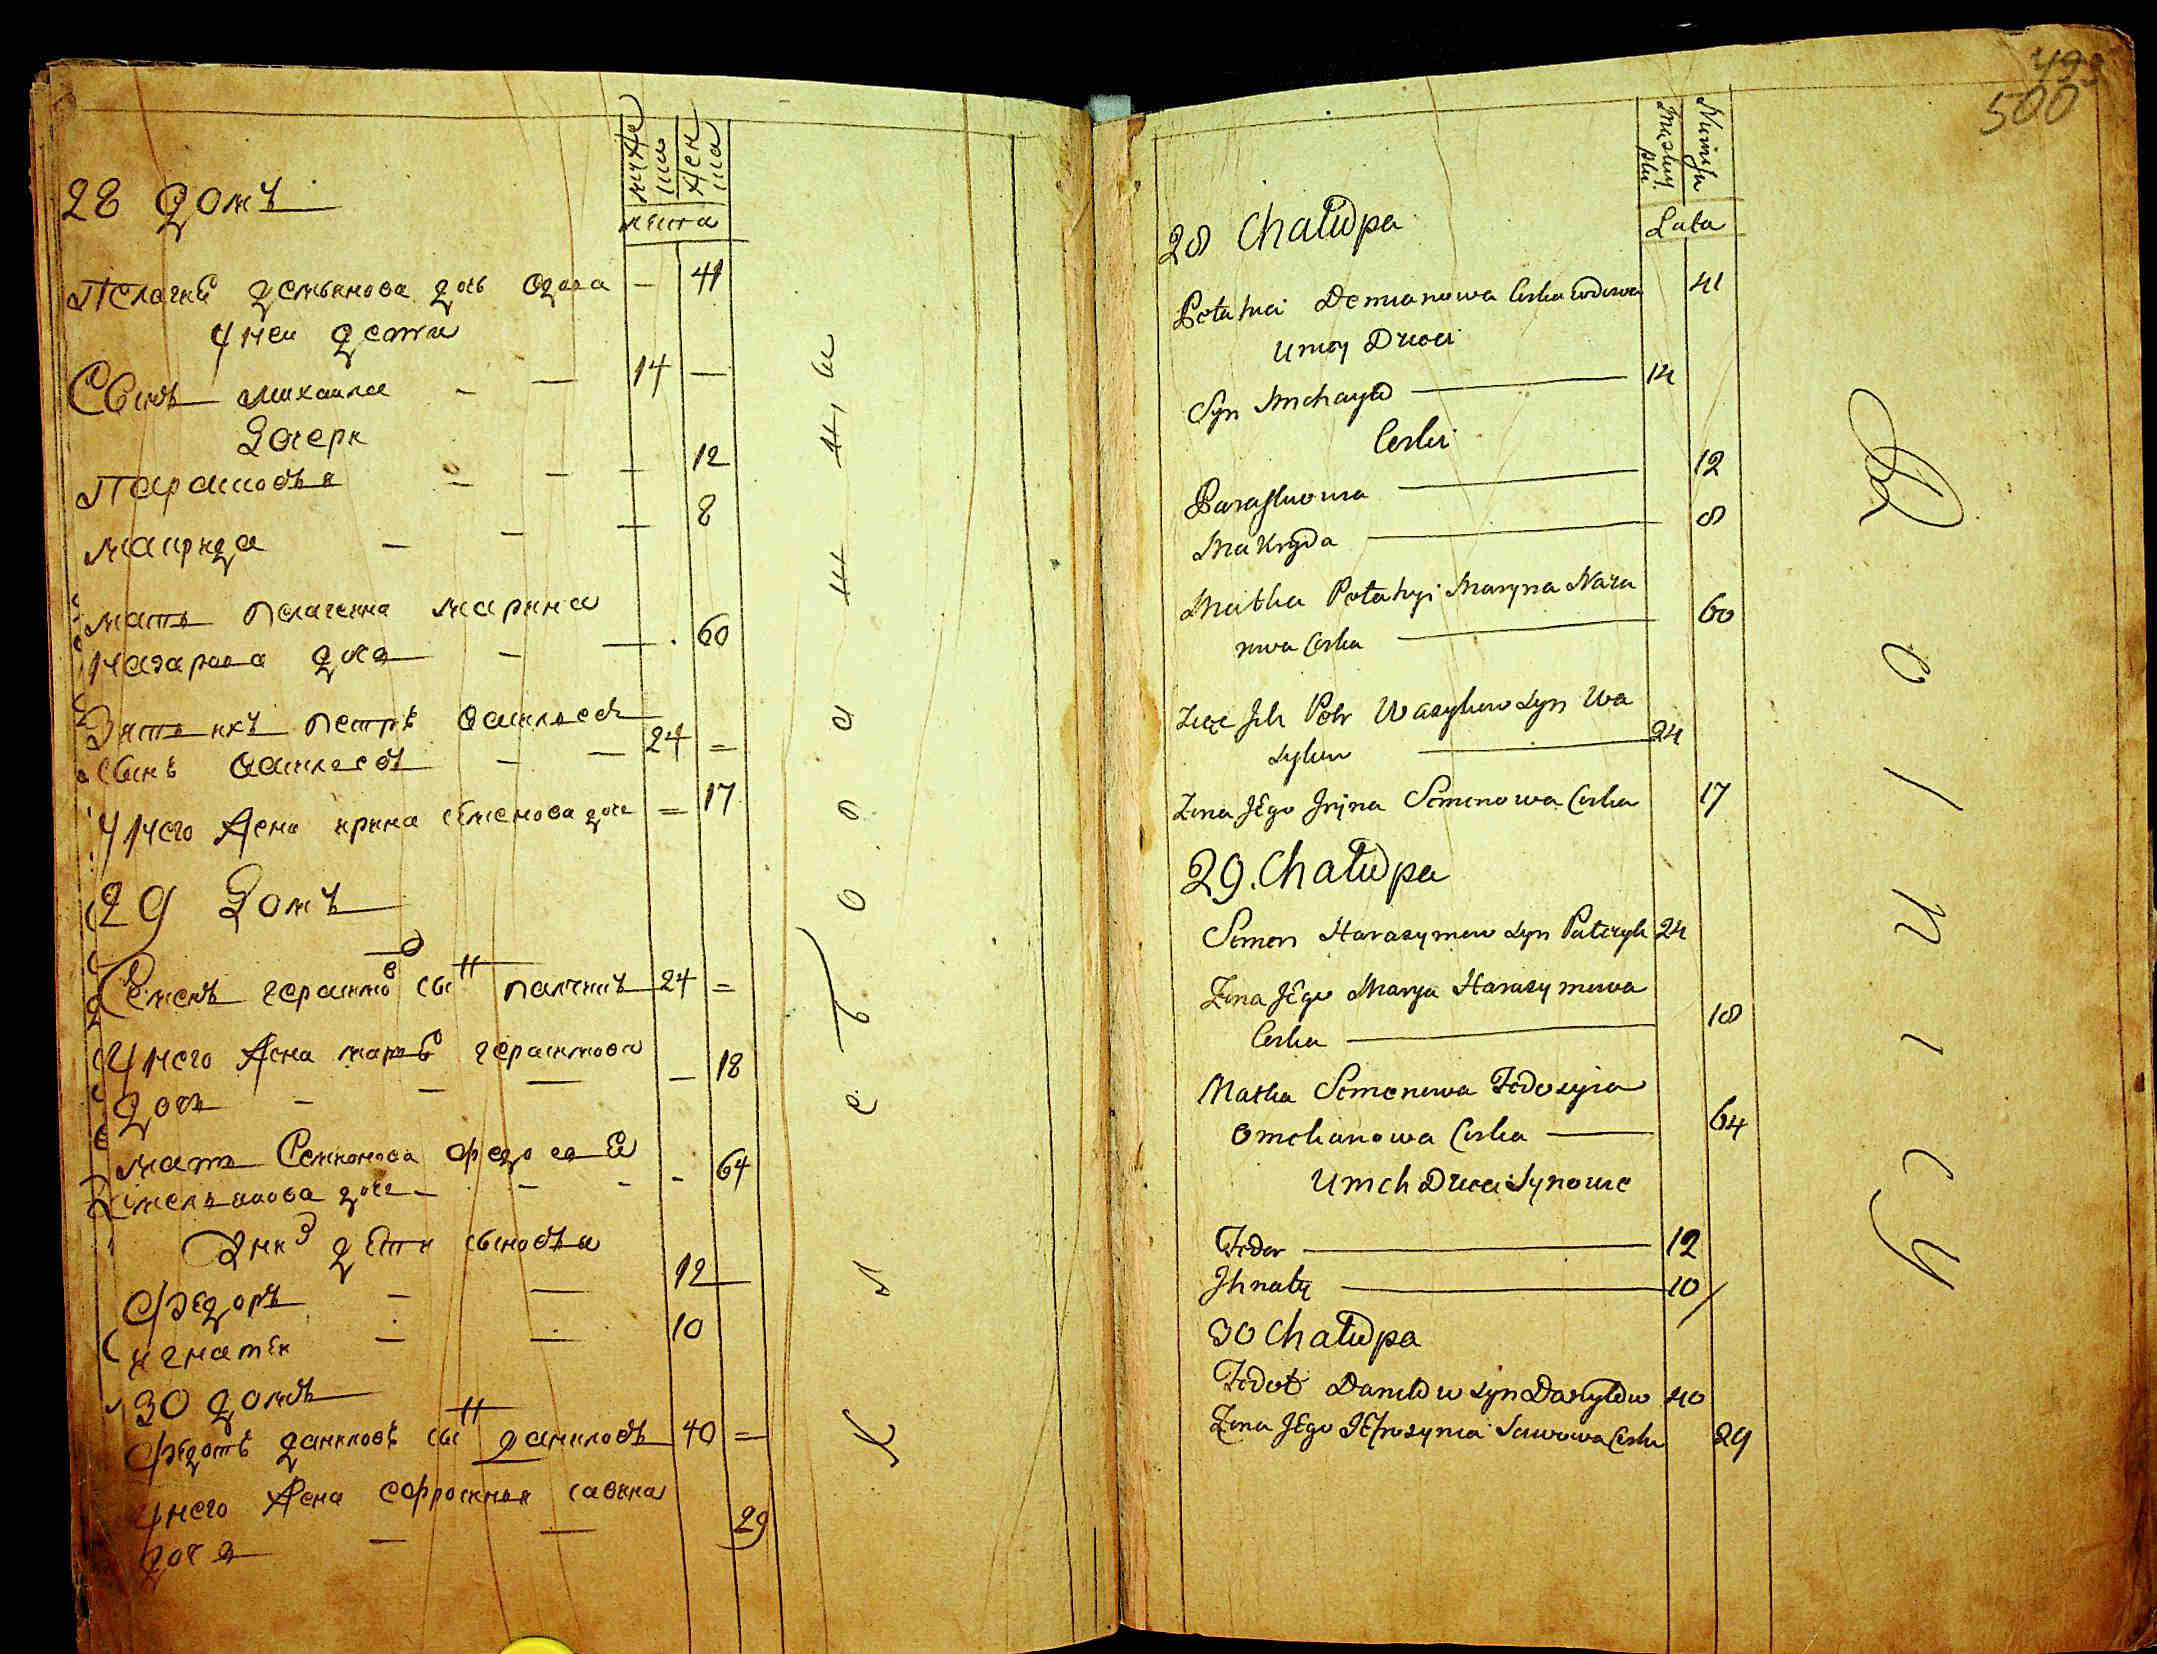 28 домъ
мужеска
женска
лѣта
Пелагиѣ демьянова дочь вдова — 41
у неи дети
Сынъ михаила — — 14 —
Дочери
Парасковья — — — 12
макрида — — — 8
мать пелагеина марина
назарова дочь — — 60
Зять ихъ петръ василевъ
сынъ василевъ — — 24 =
у него жена ирина семенова дочь = 17
29 Домъ
Семенъ герасимовъ сынъ палчикъ 24 =
у него жена мариѣ герасимова
дочь — — — — 18
мать Семионова федосеѣ
Емельянова дочь — — — - 64
У них дѣти сыновья
Фэедоръ — — 12
игнатѣи — — 10
30 домъ
Фѣдотъ даниловъ сынъ даниловъ 40 =
у него жена еофросиния савина
дочь — — 29
к л е б о в а ш н и
493
500
Muskuy Plu.
Niewista
Lata
28 Chałupa
Pełahia Demianowa Corka wdowa 41
U niey Dzieci
Syn Michayło — 14
Corki
Paraskuowia — 12
Makryda — 8
Matka Pełahyi Maryna Naza
rowa Corka — 60
Zięć Ich Potr Wasylow Syn Wa
sylow — 24
Zona Jego Iryna Semenowa Corka 17
29. Chałupa
Semen Harasymow Syn Palczyk 24
Zona Jego Marya Harasymowa
Corka — 18
Matka Semenowa Fedosyia
Omelianowa Corka — 64
U nich Dzieci Synowie
Fedor — 12
Ihnaty — 10
30 Chałupa
Fedot Daniłow Syn Daryłow 40
Zona Jego Jefrosynia Sawowa Corka 29
R o l n i c y